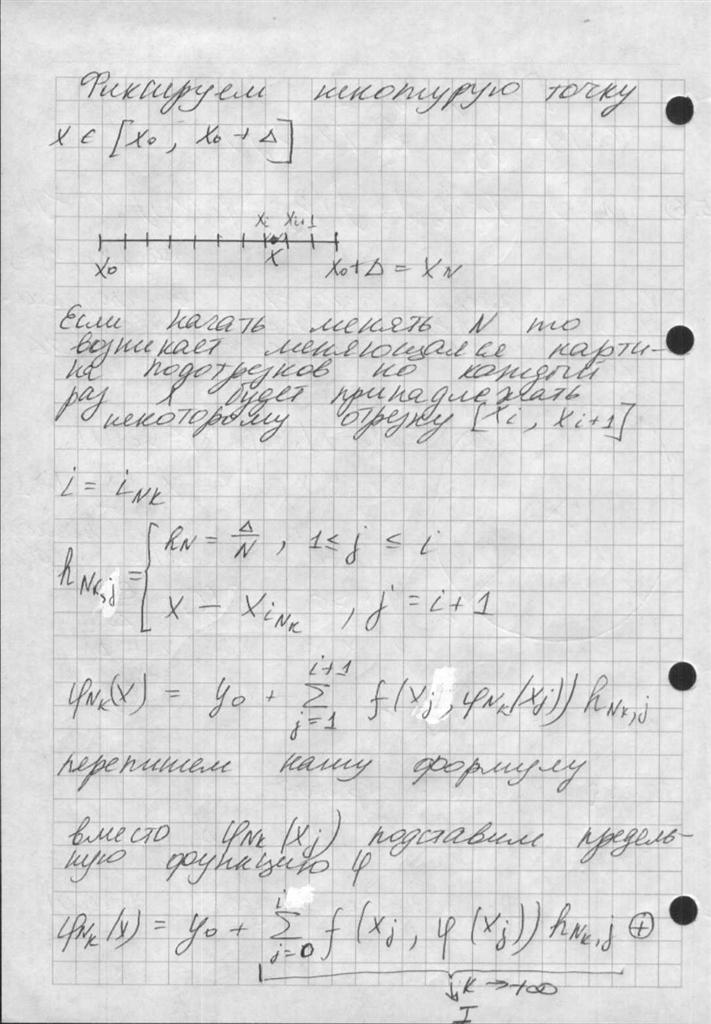 Фиксируем некотурую точку
x ∈ [x₀, x₀ + Δ]
xᵢ xᵢ₊₁
x₀ x x₀+Δ = x_N
Если начать менять N то
возникает меняющаяся карти-
на подотрезков но каждый
раз x будет принадлежать
некоторому отрезку [xᵢ, xᵢ₊₁]
i = i_{N_k}
h_N = Δ/N , 1 ≤ j ≤ i
h_{N_k,j} = {
x − x_{i_{N_k}} , j = i+1
φ_{N_k}(x) = y₀ + Σ_{j=1}^{i+1} f(x_j, φ_{N_k}(x_j)) h_{N_k,j}
перепишем нашу формулу
вместо φ_{N_k}(x_j) подставим предель-
ную функцию φ
φ_{N_k}(x) = y₀ + Σ_{j=0}^{i} f(x_j, φ(x_j)) h_{N_k,j} ⊕
↓ k → +∞
I